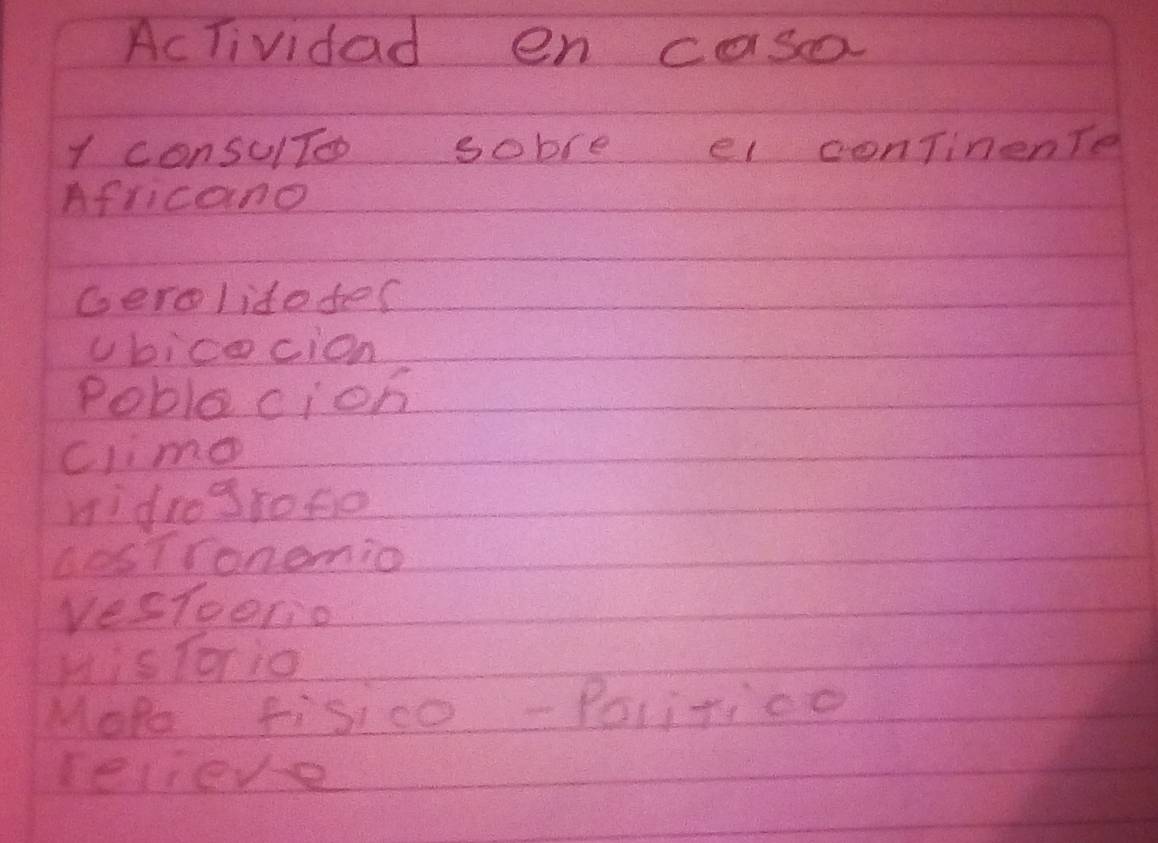 AcTividad en casa
1 consulTo sobre el conTinenTe
Africano
Gerolidades
Ubicacion
Poblacion
Clima
Hidrografia
GasTronomia
VesTuario
HisTorio
Mapa fisico - PoliTico
relieve